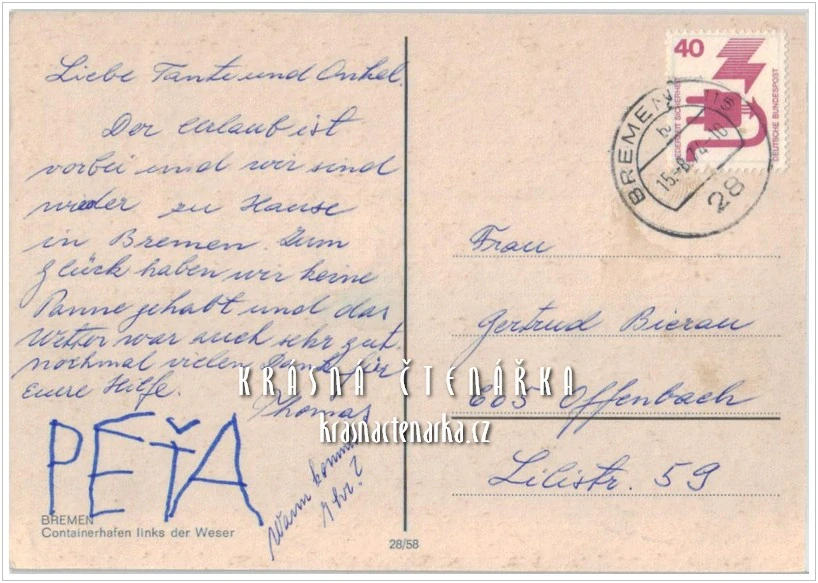 Liebe Tante und Onkel.
Der Urlaub ist
vorbei und wir sind
wieder zu Hause
in Bremen. Zum
Glück haben wir keine
Panne gehabt und das
Wetter war auch sehr gut.
nochmal vielen Dank für
Eure Hilfe.
Thomas
PÉŤA
Wann kommt
Ihr?
BREMEN
Containerhafen links der Weser
28/58
40
JEDERZEIT SICHERHEIT
DEUTSCHE BUNDESPOST
BREMEN
15.-8.74-10
28
Frau
Gertrud Bierau
605 Offenbach
Lilistr. 59
KRÁSNÁ ČTENÁŘKA
krasnactenarka.cz